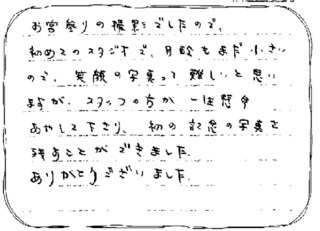 お宮参りの撮影でしたので、
初めてのスタジオで、月齢もまだ小さい
ので、笑顔の写真って難しいと思い
ますが、スタッフの方が一生懸命
あやして下さり、初の記念の写真を
残すことができました。
ありがとうございました。